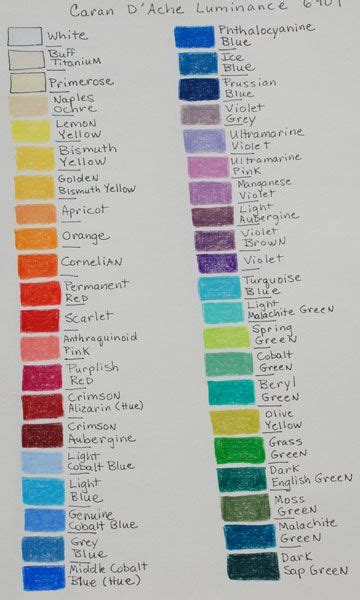 Caran D'Ache Luminance 6901
White
Buff
Titanium
Primerose
Naples
Ochre
Lemon
Yellow
Bismuth
Yellow
Golden
Bismuth Yellow
Apricot
Orange
Cornelian
Permanent
Red
Scarlet
Anthraquinoid
Pink
Purplish
Red
Crimson
Alizarin (Hue)
Crimson
Aubergine
Light
Cobalt Blue
Light
Blue
Genuine
Cobalt Blue
Grey
Blue
Middle Cobalt
Blue (Hue)
Phthalocyanine
Blue
Ice
Blue
Prussian
Blue
Violet
Grey
Ultramarine
Violet
Ultramarine
Pink
Manganese
Violet
Light
Aubergine
Violet
Brown
Violet
Turquoise
Blue
Light
Malachite Green
Spring
Green
Cobalt
Green
Beryl
Green
Olive
Yellow
Grass
Green
Dark
English Green
Moss
Green
Malachite
Green
Dark
Sap Green